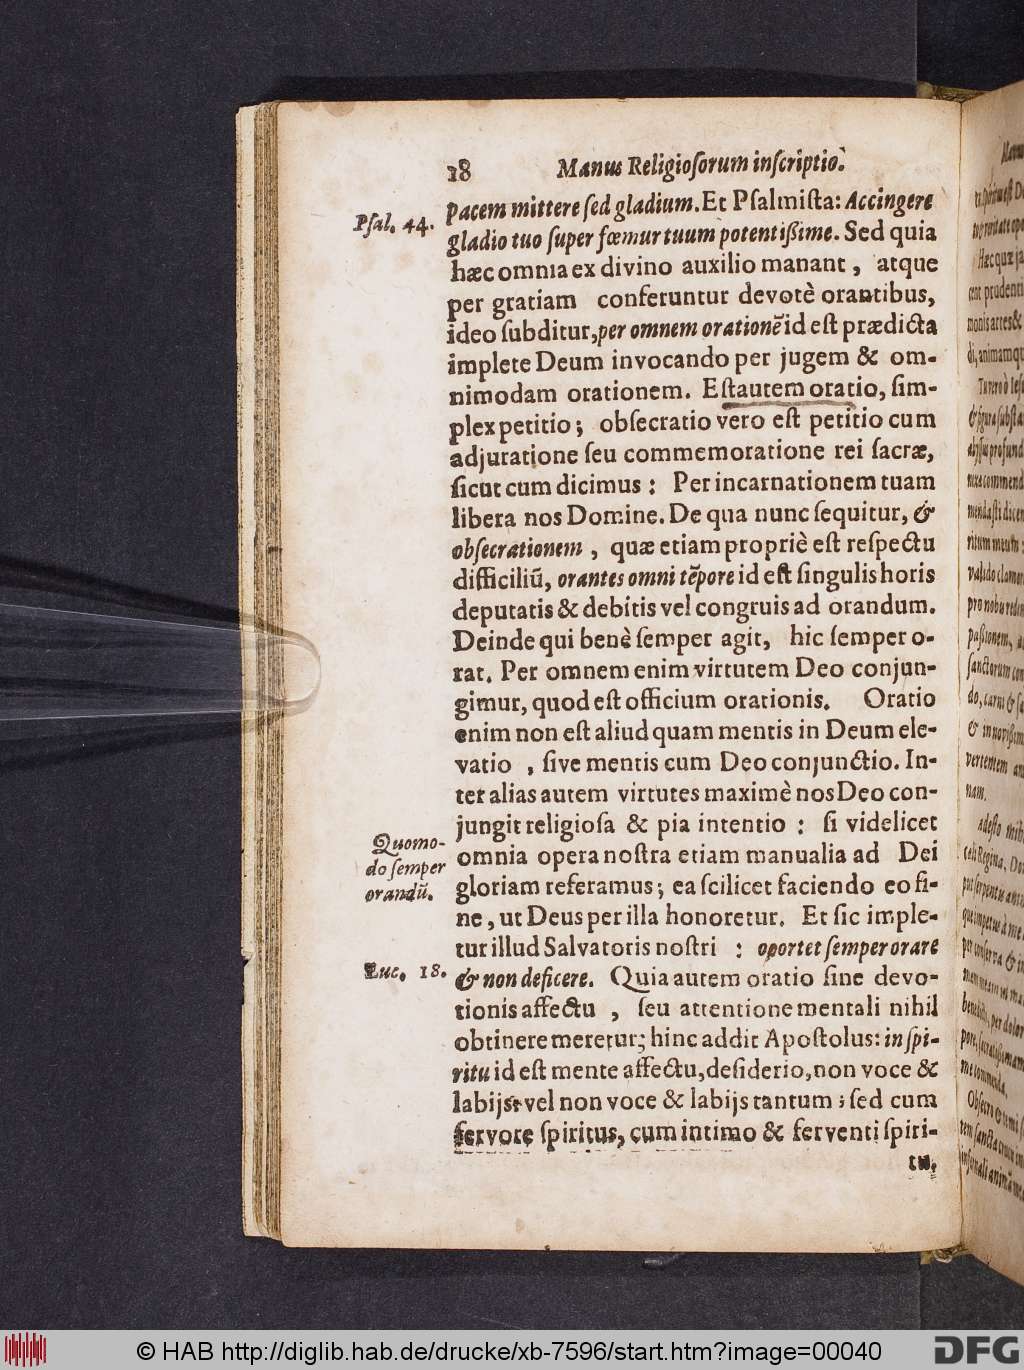 18 Manus Religioſorum inſcriptio.
Pſal. 44.
pacem mittere ſed gladium. Et Pſalmiſta: Accingere
gladio tuo ſuper fœmur tuum potentißime. Sed quia
hæc omnia ex divino auxilio manant, atque
per gratiam conferuntur devotè orantibus,
ideo ſubditur, per omnem orationē id eſt prædicta
implete Deum invocando per jugem & om-
nimodam orationem. Eſt autem oratio, ſim-
plex petitio; obſecratio vero eſt petitio cum
adjuratione ſeu commemoratione rei ſacræ,
ſicut cum dicimus: Per incarnationem tuam
libera nos Domine. De qua nunc ſequitur, &
obſecrationem, quæ etiam propriè eſt reſpectu
difficiliū, orantes omni tēpore id eſt ſingulis horis
deputatis & debitis vel congruis ad orandum.
Deinde qui benè ſemper agit, hic ſemper o-
rat. Per omnem enim virtutem Deo conjun-
gimur, quod eſt officium orationis. Oratio
enim non eſt aliud quam mentis in Deum ele-
vatio, ſive mentis cum Deo conjunctio. In-
ter alias autem virtutes maximè nos Deo con-
jungit religioſa & pia intentio: ſi videlicet
Quomo-
do ſemper
orandū.
omnia opera noſtra etiam manualia ad Dei
gloriam referamus; ea ſcilicet faciendo eo fi-
ne, ut Deus per illa honoretur. Et ſic imple-
tur illud Salvatoris noſtri: oportet ſemper orare
Luc. 18.
& non deficere. Quia autem oratio ſine devo-
tionis affectu, ſeu attentione mentali nihil
obtinere meretur; hinc addit Apoſtolus: in ſpi-
ritu id eſt mente affectu, deſiderio, non voce &
labijs vel non voce & labijs tantum; ſed cum
fervore ſpiritus, cum intimo & ferventi ſpiri-
tu.
© HAB http://diglib.hab.de/drucke/xb-7596/start.htm?image=00040
DFG